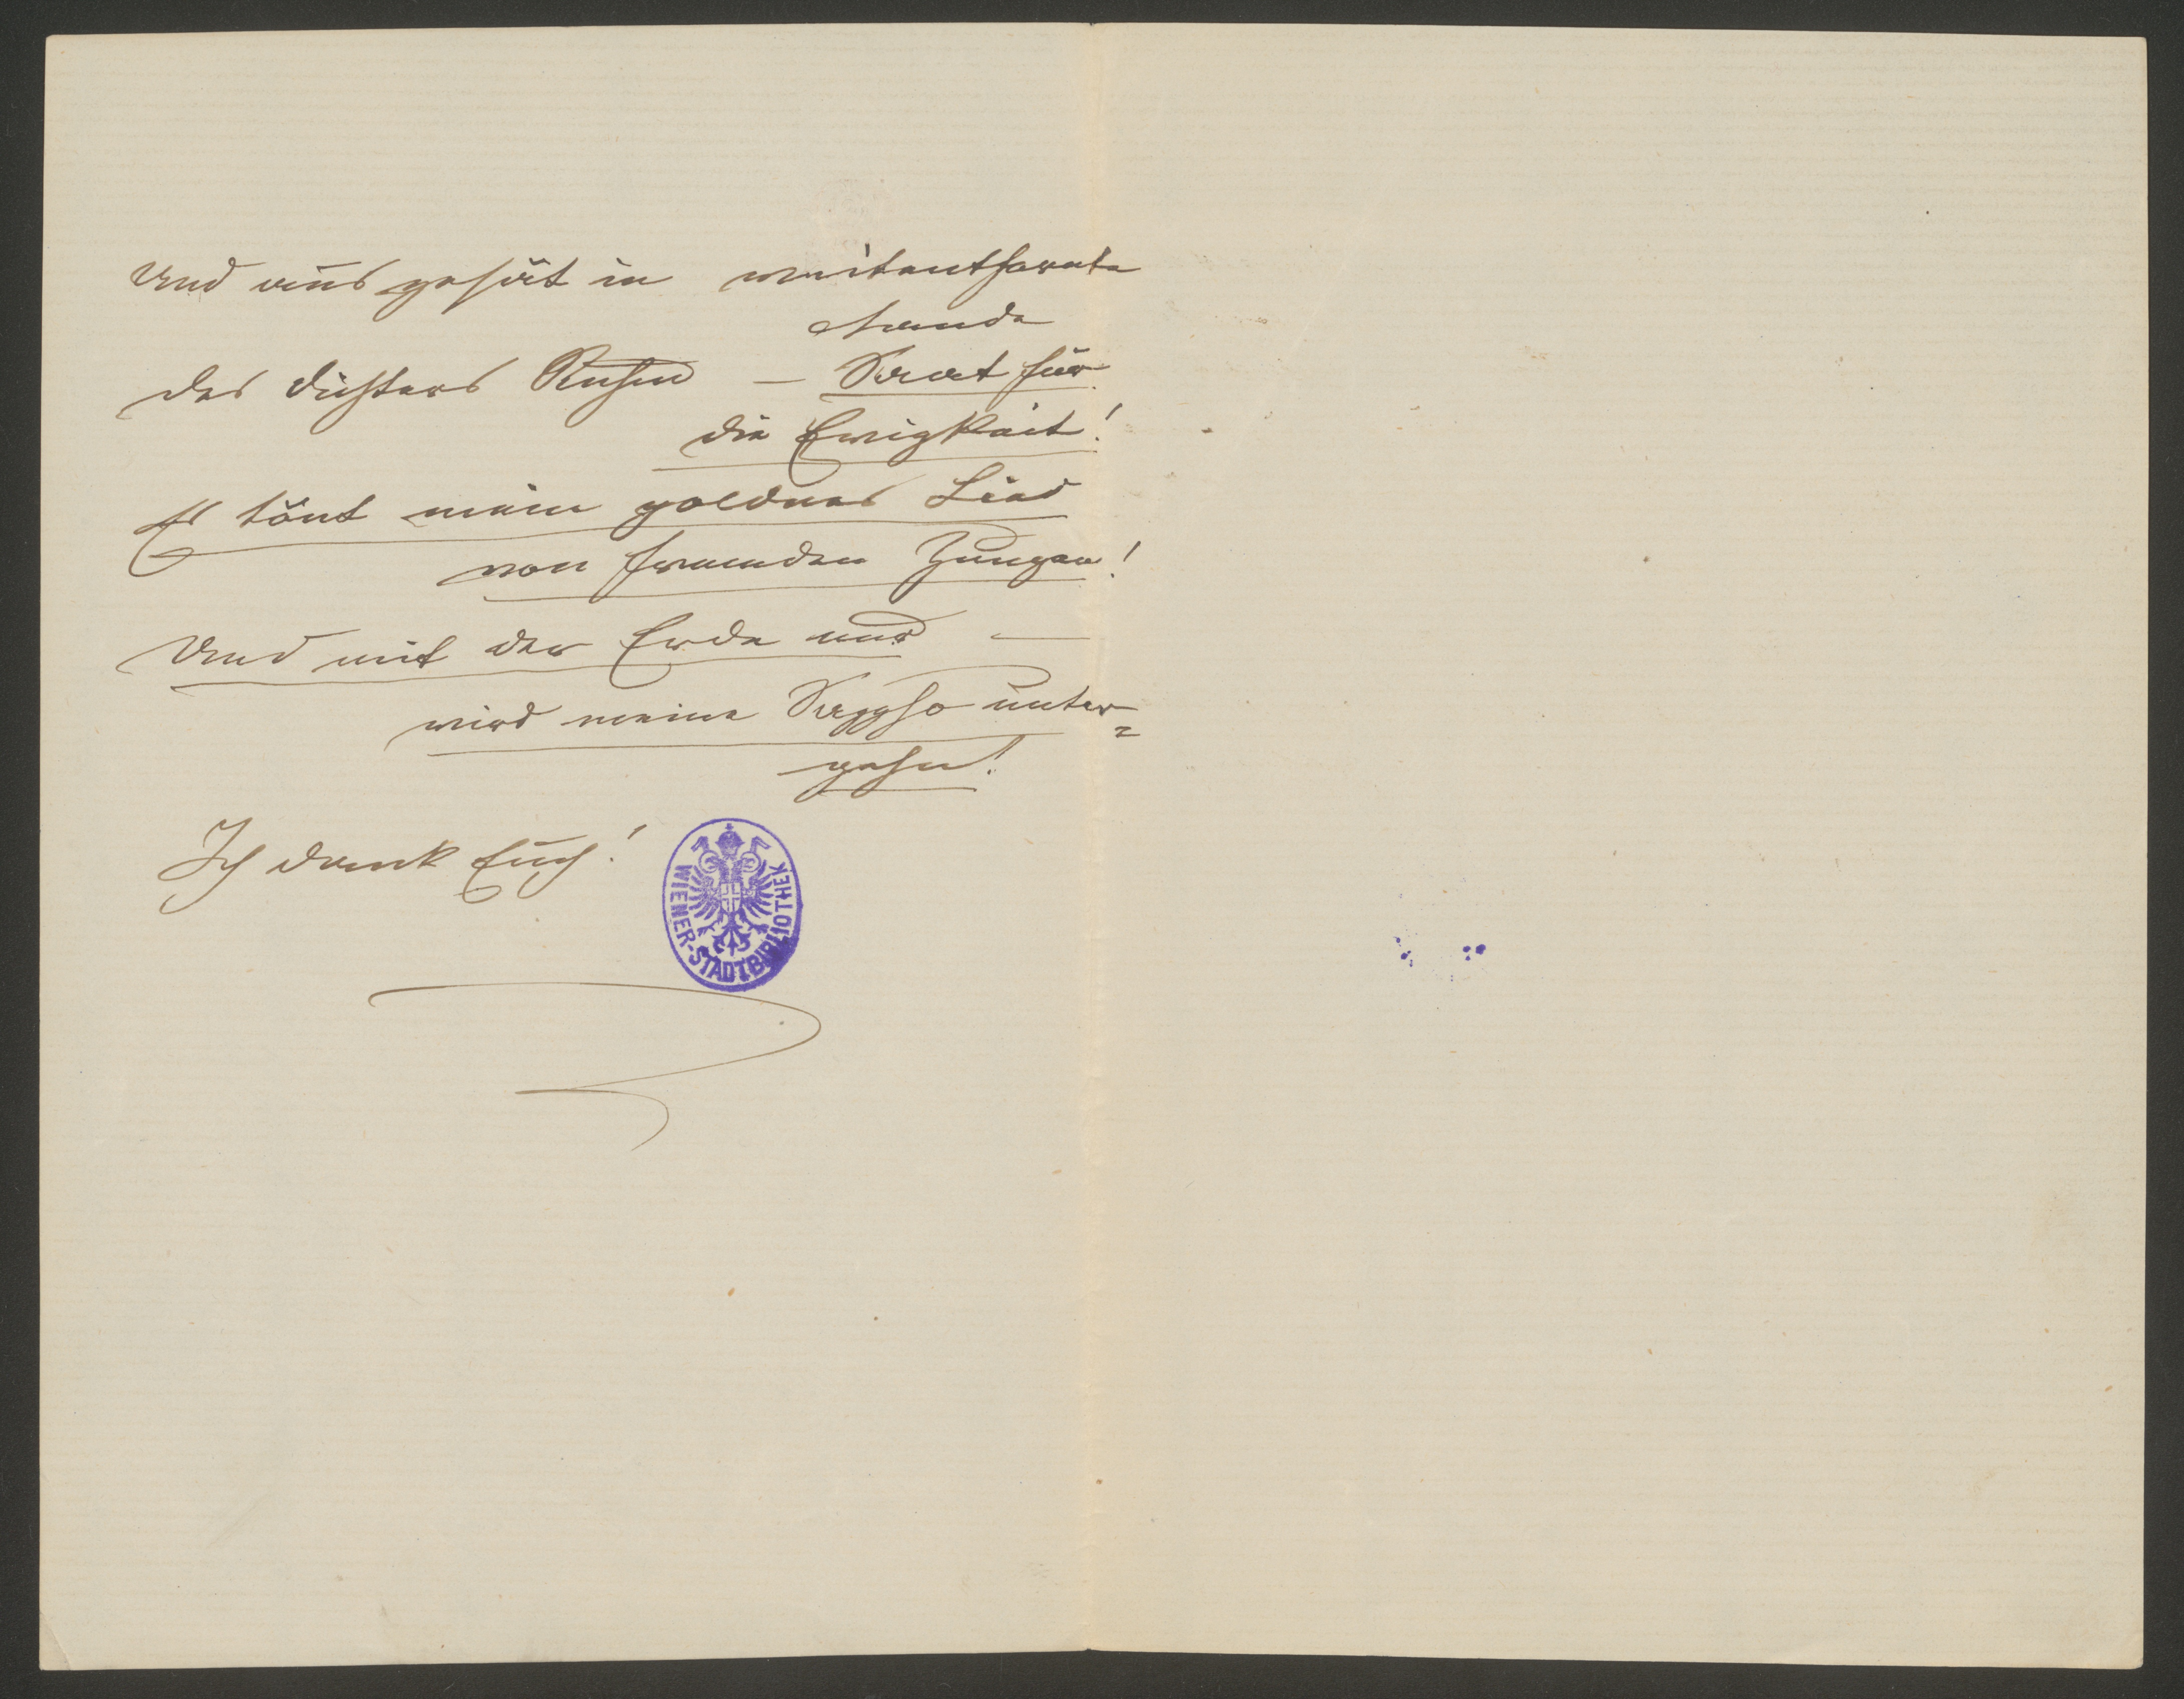 Und ausgesät in weitentfernte
Lande
Des Dichters Ruhm — Saat für
die Ewigkeit!
Es tönt mein goldnes Lied
von fremden Zungen!
Und mit der Erde nur —
wird meine Sappho unter=
gehn!
Ich dank Euch!
WIENER-STADTBIBLIOTHEK